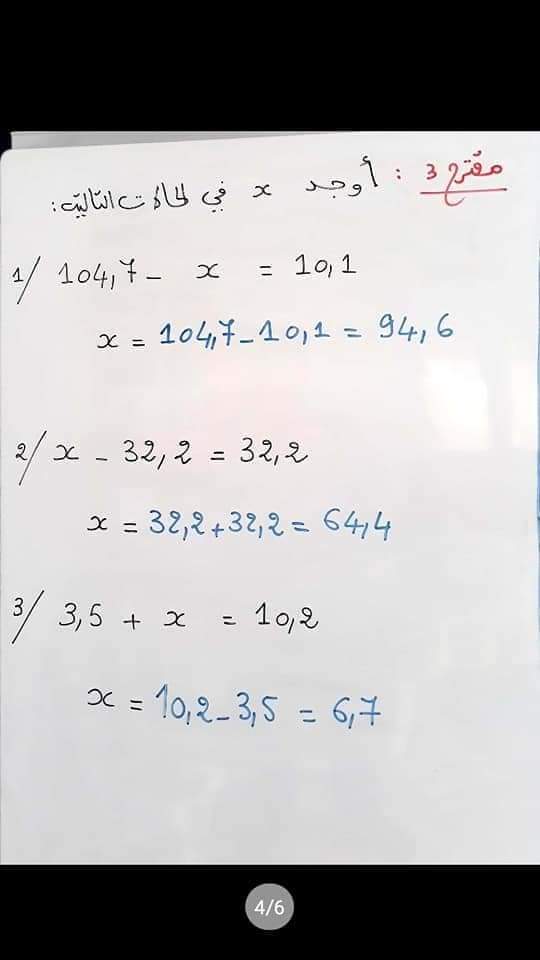 مقترح 3 : أوجد x في الحالات التالية :
1/ 104,7 - x = 10,1
x = 104,7 - 10,1 = 94,6
2/ x - 32,2 = 32,2
x = 32,2 + 32,2 = 64,4
3/ 3,5 + x = 10,2
x = 10,2 - 3,5 = 6,7
4/6